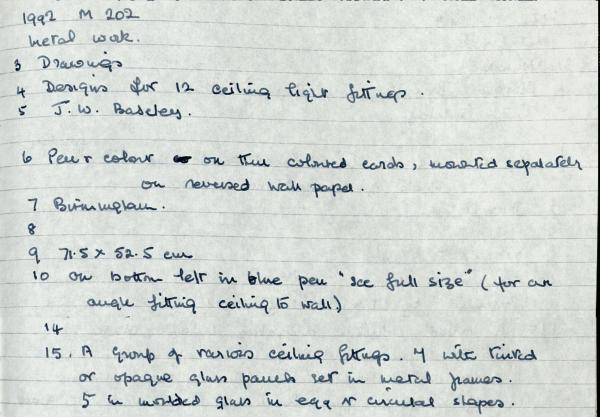 1992 M 202
Metal work.
3 Drawings
4 Designs for 12 ceiling light fittings.
5 J. W. Baseley.
6 Pen & colour on thin coloured cards, mounted separately
on reversed wall paper.
7 Birmingham.
8
9 71.5 x 52.5 cm
10 on bottom left in blue pen "see full size" (for an
angle fitting ceiling to wall)
14
15. A group of various ceiling fittings. 7 with tinted
or opaque glass panels set in metal frames.
5 in molded glass in egg or circular shapes.